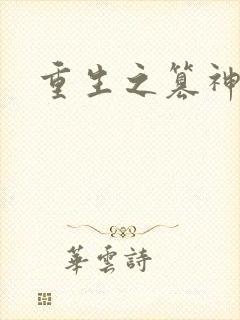 重生之篡神
華雲詩